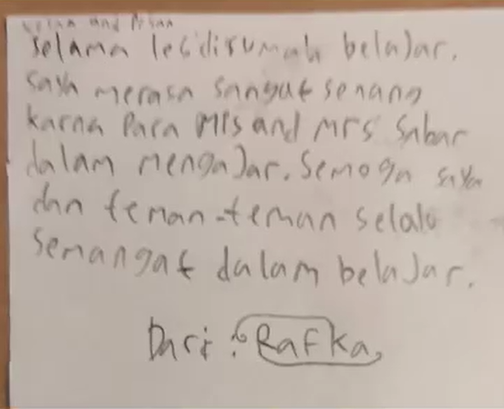 Kesan and Pesan
Selama les dirumah belajar.
saya merasa sangat senang
karna Para Mis and Mrs Sabar
dalam mengajar. Semoga saya
dan teman-teman selalu
Semangat dalam belajar.
Dari : Rafka,